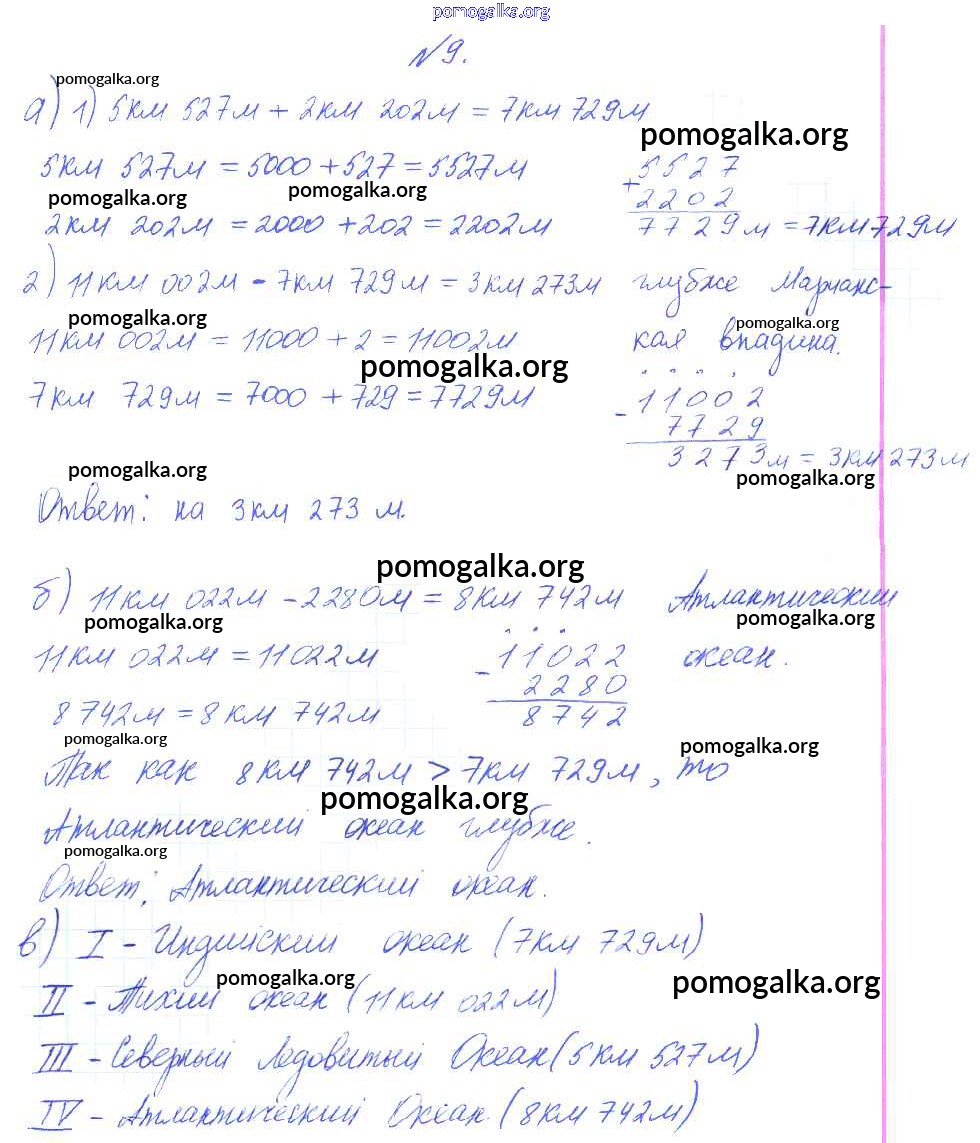 pomogalka.org
№9.
pomogalka.org
а) 1) 5км 527м + 2км 202м = 7км 729м
pomogalka.org
5км 527м = 5000 + 527 = 5527м
5527
pomogalka.org
pomogalka.org
+ 2202
2км 202м = 2000 + 202 = 2202м
7729м = 7км 729м
2) 11км 002м - 7км 729м = 3км 273м глубже Марианс-
pomogalka.org
pomogalka.org
11км 002м = 11000 + 2 = 11002м
кая впадина.
pomogalka.org
7км 729м = 7000 + 729 = 7729м
- 11002
7729
3273м = 3км 273м
pomogalka.org
pomogalka.org
Ответ: на 3км 273 м.
pomogalka.org
б) 11км 022м - 2280м = 8км 742м Атлантический
pomogalka.org
pomogalka.org
11км 022м = 11022м
- 11022
океан.
2280
8742м = 8км 742м
8742
pomogalka.org
pomogalka.org
Так как 8км 742м > 7км 729м, то
pomogalka.org
Атлантический океан глубже.
pomogalka.org
Ответ: Атлантический океан.
в) I - Индийский океан (7км 729м)
pomogalka.org
pomogalka.org
II - Тихий океан (11км 022м)
III - Северный Ледовитый Океан (5км 527м)
IV - Атлантический Океан. (8км 742м)